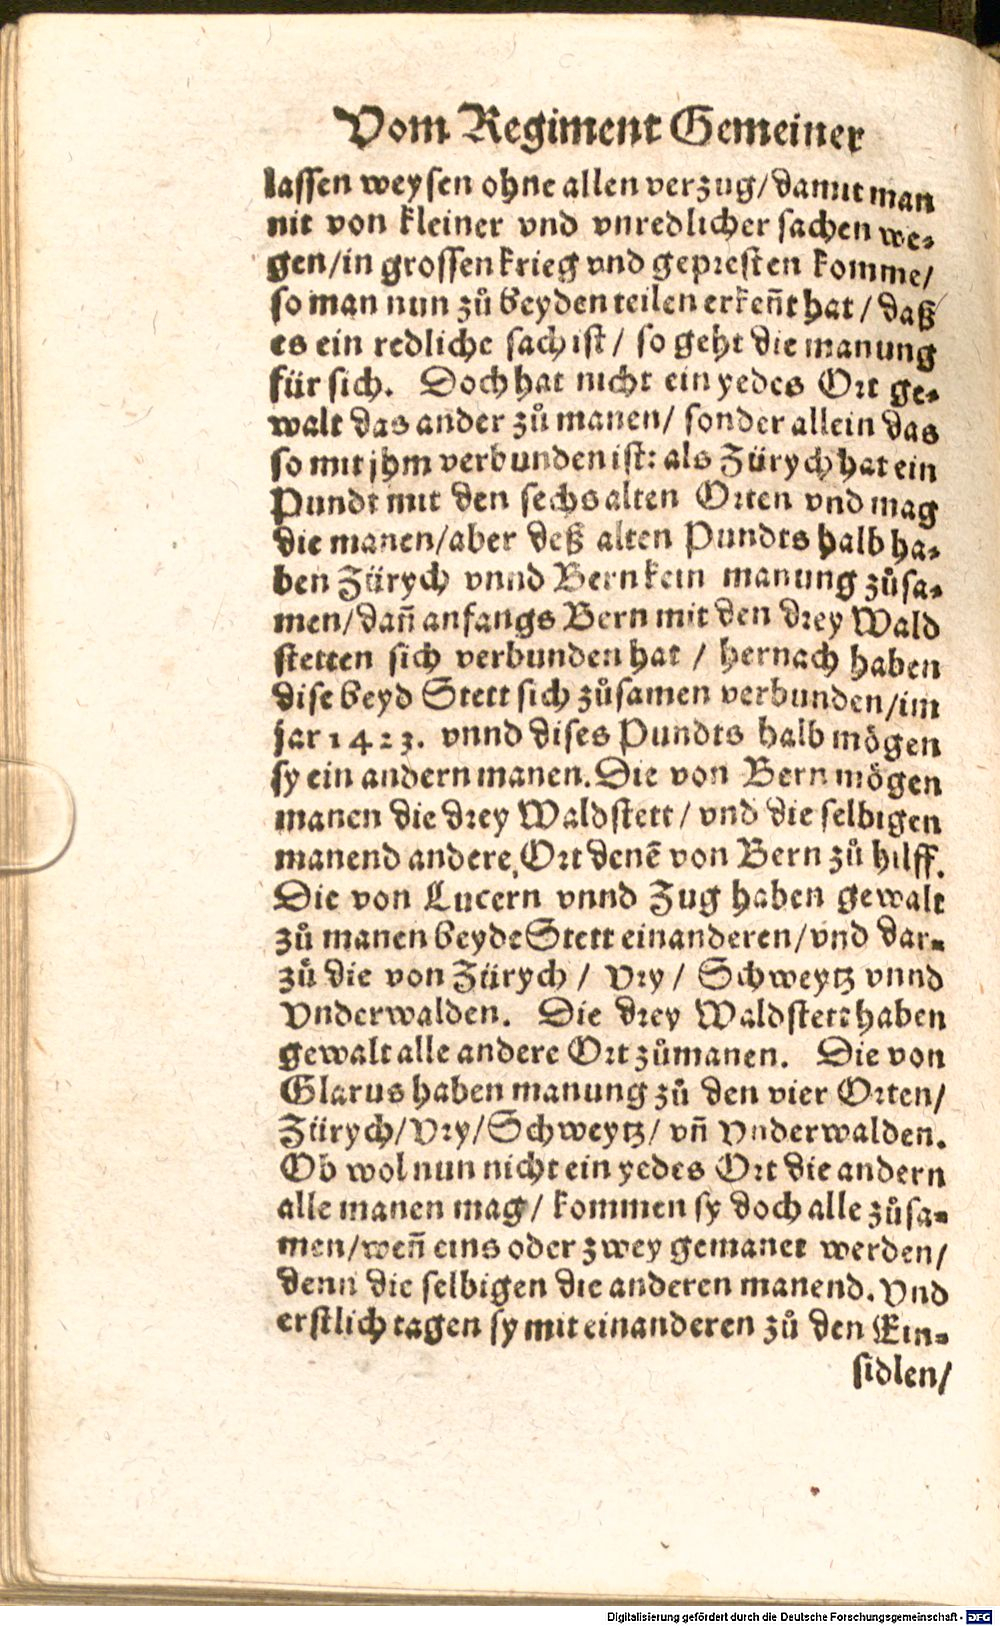 Vom Regiment Gemeiner
lassen weysen ohne allen verzug/ damit man
nit von kleiner vnd vnredlicher sachen we⸗
gen/ in grossen krieg vnd gepresten komme/
so man nun zů beyden teilen erkeñt hat/ daß
es ein redliche sach ist/ so geht die manung
für sich. Doch hat nicht ein yedes Ort ge⸗
walt das ander zů manen/ sonder allein das
so mit jhm verbunden ist: als Zürych hat ein
Pundt mit den sechs alten Orten vnd mag
die manen/ aber deß alten Pundts halb ha⸗
ben Zürych vnnd Bern kein manung zůsa⸗
men/ dañ anfangs Bern mit den drey Wald
stetten sich verbunden hat/ hernach haben
dise beyd Stett sich zůsamen verbunden/ im
jar 1423. vnnd dises Pundts halb mögen
sy ein andern manen. Die von Bern mögen
manen die drey Waldstett/ vnd die selbigen
manend andere Ort denē von Bern zů hilff.
Die von Lucern vnnd Zug haben gewalt
zů manen beyde Stett einanderen/ vnd dar⸗
zů die von Zürych/ Vry/ Schweytz vnnd
Vnderwalden. Die drey Waldstett haben
gewalt alle andere Ort zůmanen. Die von
Glarus haben manung zů den vier Orten/
Zürych/ Vry/ Schweytz/ vñ Vnderwalden.
Ob wol nun nicht ein yedes Ort die andern
alle manen mag/ kommen sy doch alle zůsa⸗
men/ weñ eins oder zwey gemanet werden/
denn die selbigen die anderen manend. Vnd
erstlich tagen sy mit einanderen zů den Ein⸗
sidlen/
Digitalisierung gefördert durch die Deutsche Forschungsgemeinschaft - DFG